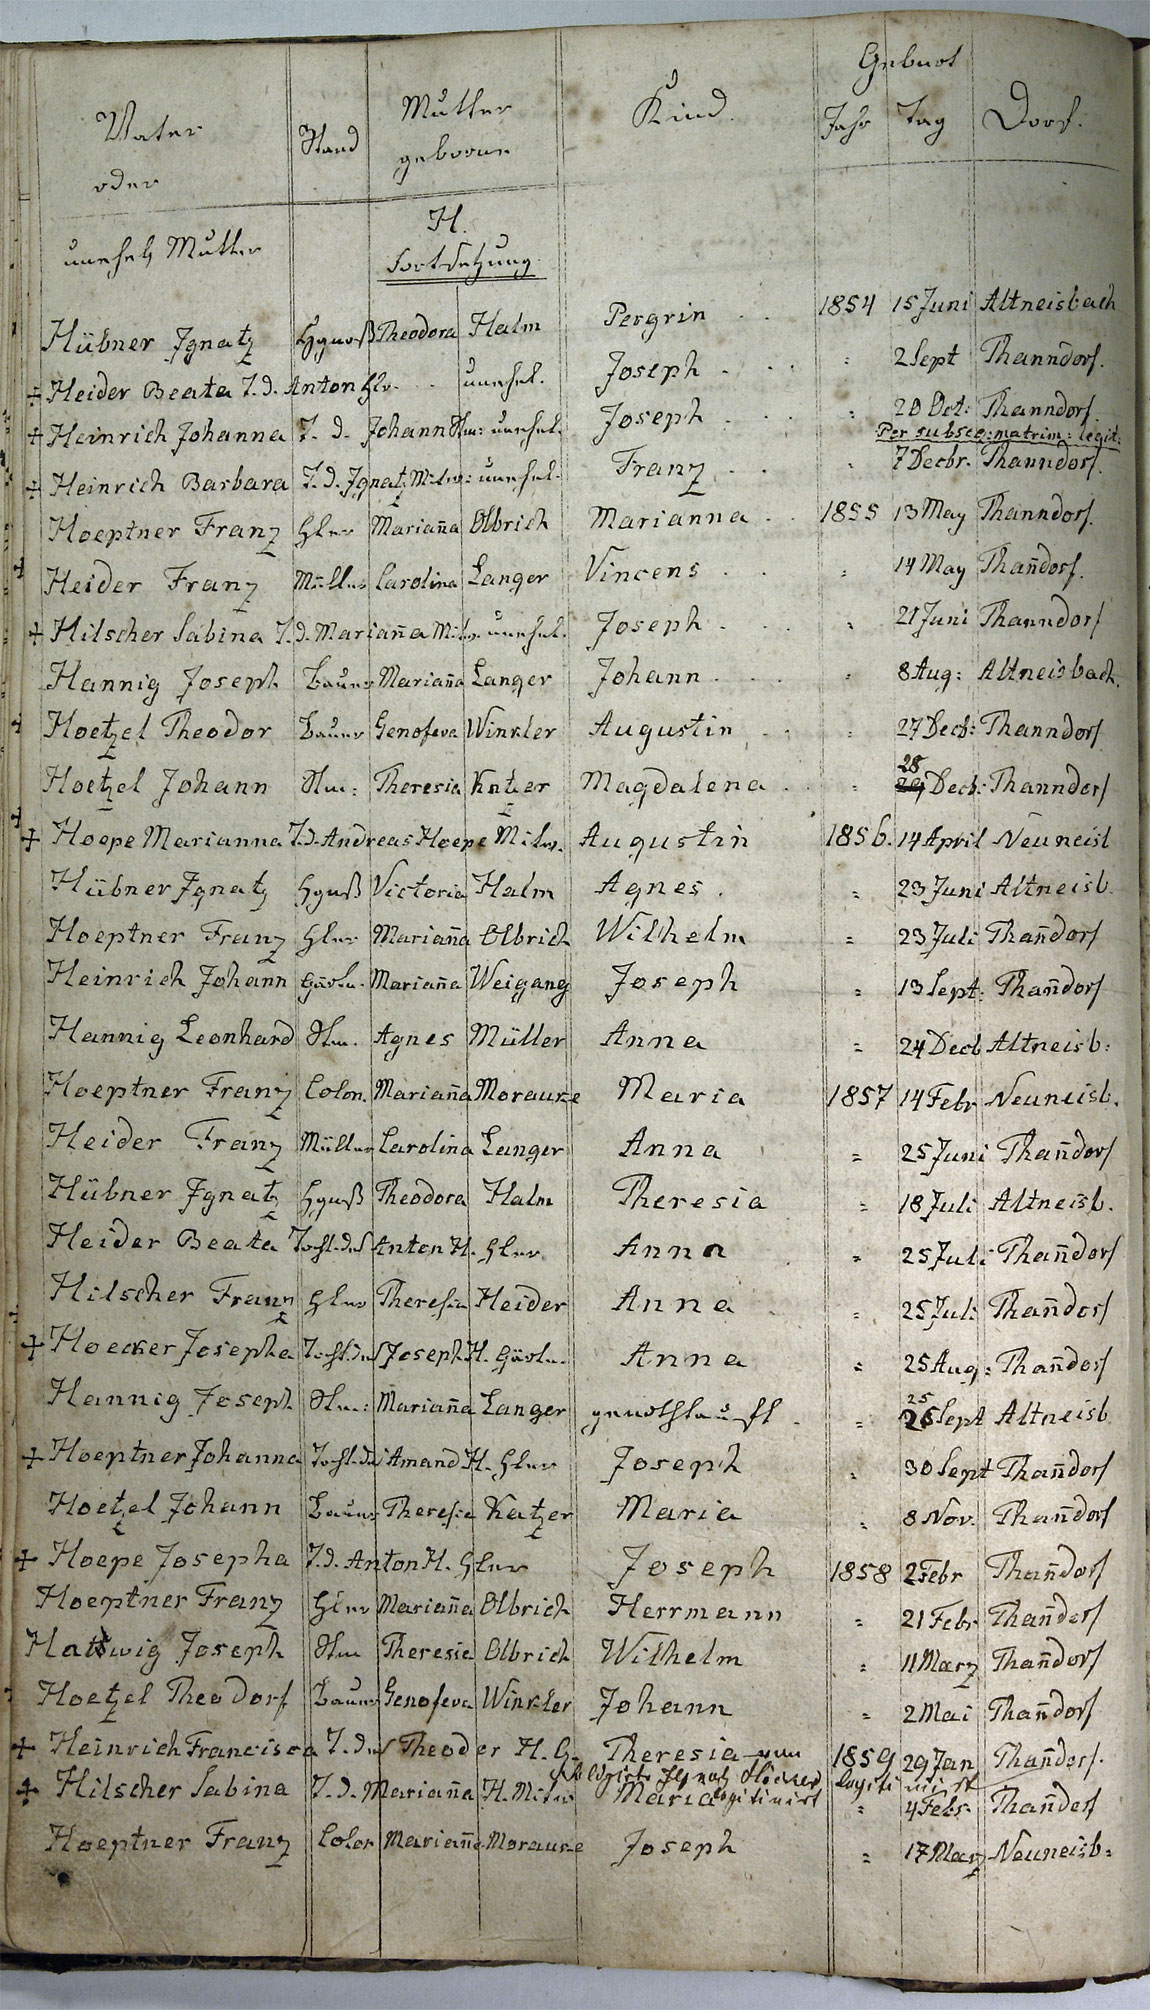 Geburt
Vater Stand Mutter Kind. Jahr Tag Dorf.
oder geborne
unehel. Mutter H.
Fortsetzung.
Hübner Ignatz Theodora Halm Pergrin 1854 15 Juni Altneisbach
÷ Heider Beata T. d. Anton Hlr. unehel. Joseph = 2 Sept Thanndorf.
+ Heinrich Johanna T. d. Johann Stm: unehel. Joseph = 20 Oct: Thanndorf.
Per subseq: matrim: legit:
+ Heinrich Barbara T. d. Ignatz Mitw: unehel. Franz = 7 Decbr. Thanndorf.
Hoeptner Franz Hler Marian̄a Olbrich Marianna 1855 13 May Thanndorf.
+ Heider Franz Müller Carolina Langer Vincens = 14 May Than̄dorf.
+ Hilscher Sabina T. d. Marian̄a Mitw. unehel. Joseph = 21 Juni Thanndorf
Hannig Joseph Bauer Marian̄a Langer Johann = 8 Aug: Altneisbach.
+ Hoetzel Theodor Bauer Genofeva Winkler Augustin = 27 Decb: Thanndorf
Hoetzel Johann Stm: Theresia Katzer Magdalena = 28 Decb: Thanndorf
+ Hoepe Marianna T. d. Andreas Hoepe Mitw. Augustin 1856. 14 April Neuneisb
Hübner Ignatz Victoria Halm Agnes. = 23 Juni Altneisb.
Hoeptner Franz Hler Marian̄a Olbrich Wilhelm = 23 Juli Than̄dorf
Heinrich Johann Gärtn. Marian̄a Weigang Joseph = 13 Sept: Than̄dorf
Hannig Leonhard Stm. Agnes Müller Anna = 24 Decb Altneisb:
Hoeptner Franz Colon. Marian̄a Morauke Maria 1857 14 Febr Neuneisb.
Heider Franz Müller Carolina Langer Anna = 25 Juni Than̄dorf
Hübner Ignatz Theodora Halm Theresia = 18 Juli Altneisb.
Heider Beata Tocht. des Anton H. Hler Anna = 25 Juli Than̄dorf
Hilscher Franz Hler Theresia Heider Anna = 25 Juli Than̄dorf
+ Hoecker Josepha Tocht. des Joseph H. Gärtn. Anna = 25 Aug: Than̄dorf
Hannig Joseph Stm: Marian̄a Langer genothtauft = 25 Sept Altneisb
+ Hoeptner Johanna Tocht. des Amand H. Hler Joseph = 30 Sept Than̄dorf
Hoetzel Johann Bauer Theresia Katzer Maria = 8 Nov. Than̄dorf
+ Hoepe Josepha T. d. Anton H. Hler Joseph 1858 2 Febr Than̄dorf
Hoeptner Franz Hler Marian̄a Olbrich Herrmann = 21 Febr Than̄dorf
Hattwig Joseph Stm Theresia Olbrich Wilhelm = 11 Marz Than̄dorf
Hoetzel Theodorf Bauer Genofeva Winkler Johann = 2 Mai Than̄dorf
+ Heinrich Francisca T. des Theoder H. G. Theresia 1859 29 Jan Than̄dorf.
Ignatz legitimirt
+ Hilscher Sabina T. d. Marian̄a H. Mitw Maria = 4 Febr. Than̄dorf
Hoeptner Franz Colon Marian̄a Morauke Joseph = 17 Marz Neuneisb: